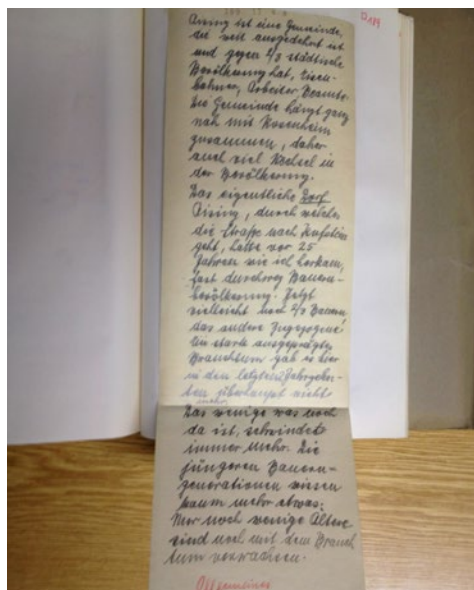 Aising ist eine Gemeinde,
die weit ausgedehnt ist
und gegen 2/3 städtische
Bevölkerung hat, Eisen-
bahner, Arbeiter, Beamte.
Die Gemeinde hängt ganz
nah mit Rosenheim
zusammen, daher
auch viel Wechsel in
der Bevölkerung.
Das eigentliche Dorf
Aising, durch welches
die Straße nach Kufstein
geht, hatte vor 25
Jahren wie ich herkam,
fast durchweg Bauern-
bevölkerung. Jetzt
vielleicht noch 2/3 Bauern
das andere Zugezogene!
Ein stark ausgeprägtes
Brauchtum gab es hier
in den letzten Jahrzehn-
ten überhaupt nicht
mehr.
Das wenige was noch
da ist, schwindet
immer mehr. Die
jüngeren Bauern-
generationen wissen
kaum mehr etwas.
Nur noch wenige Ältere
sind noch mit dem Brauch
tum verwachsen.
Allgemeines